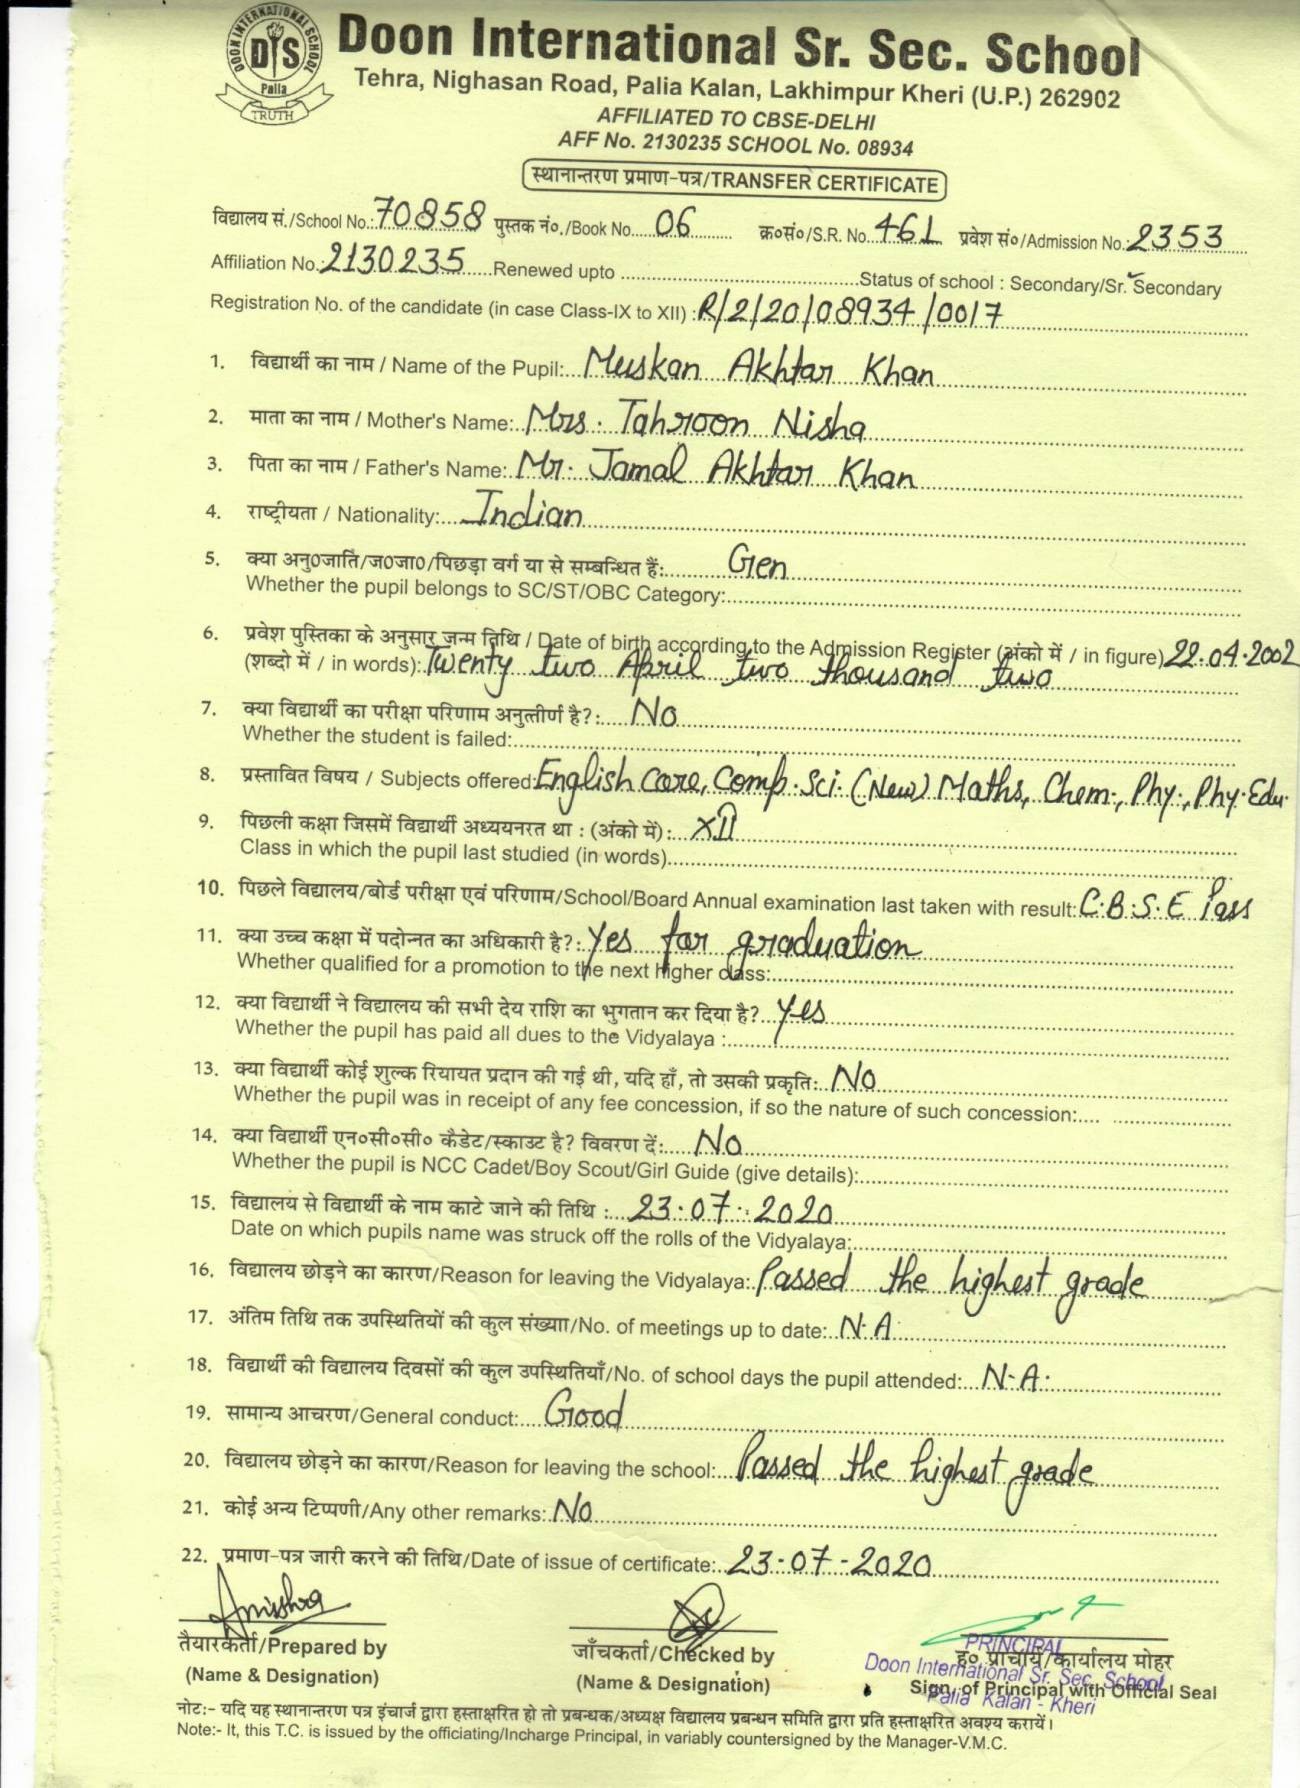 DOON INTERNATIONAL SCHOOL
DIS
Palia
TRUTH
Doon International Sr. Sec. School
Tehra, Nighasan Road, Palia Kalan, Lakhimpur Kheri (U.P.) 262902
AFFILIATED TO CBSE-DELHI
AFF No. 2130235 SCHOOL No. 08934
स्थानान्तरण प्रमाण-पत्र/TRANSFER CERTIFICATE
विद्यालय सं./School No.: 70858 पुस्तक नं०./Book No. 06 क्र०सं०/S.R. No. 461 प्रवेश सं०/Admission No. 2353
Affiliation No.: 2130235 Renewed upto Status of school : Secondary/Sr. Secondary
Registration No. of the candidate (in case Class-IX to XII) : R/2/20/08934/0017
1. विद्यार्थी का नाम / Name of the Pupil: Muskan Akhtar Khan
2. माता का नाम / Mother's Name: Mrs. Tahroon Nisha
3. पिता का नाम / Father's Name: Mr. Jamal Akhtar Khan
4. राष्ट्रीयता / Nationality: Indian
5. क्या अनु0जाति/ज0जा0/पिछड़ा वर्ग या से सम्बन्धित हैं: Gen
Whether the pupil belongs to SC/ST/OBC Category:
6. प्रवेश पुस्तिका के अनुसार जन्म तिथि / Date of birth according to the Admission Register (अंको में / in figure) 22.04.2002
(शब्दो में / in words): Twenty two April two thousand two
7. क्या विद्यार्थी का परीक्षा परिणाम अनुत्तीर्ण है?: No
Whether the student is failed:
8. प्रस्तावित विषय / Subjects offered: English Core, Comp. Sci. (New) Maths, Chem., Phy., Phy. Edu.
9. पिछली कक्षा जिसमें विद्यार्थी अध्ययनरत था : (अंको में) : XII
Class in which the pupil last studied (in words)
10. पिछले विद्यालय/बोर्ड परीक्षा एवं परिणाम/School/Board Annual examination last taken with result: C.B.S.E Pass
11. क्या उच्च कक्षा में पदोन्नत का अधिकारी है?: Yes for graduation
Whether qualified for a promotion to the next higher class:
12. क्या विद्यार्थी ने विद्यालय की सभी देय राशि का भुगतान कर दिया है? Yes
Whether the pupil has paid all dues to the Vidyalaya :
13. क्या विद्यार्थी कोई शुल्क रियायत प्रदान की गई थी, यदि हाँ, तो उसकी प्रकृति: No
Whether the pupil was in receipt of any fee concession, if so the nature of such concession:
14. क्या विद्यार्थी एन०सी०सी० कैडेट/स्काउट है? विवरण दें: No
Whether the pupil is NCC Cadet/Boy Scout/Girl Guide (give details):
15. विद्यालय से विद्यार्थी के नाम काटे जाने की तिथि : 23.07.2020
Date on which pupils name was struck off the rolls of the Vidyalaya:
16. विद्यालय छोड़ने का कारण/Reason for leaving the Vidyalaya: Passed the highest grade
17. अंतिम तिथि तक उपस्थितियों की कुल संख्या/No. of meetings up to date: N.A
18. विद्यार्थी की विद्यालय दिवसों की कुल उपस्थितियाँ/No. of school days the pupil attended: N.A.
19. सामान्य आचरण/General conduct: Good
20. विद्यालय छोड़ने का कारण/Reason for leaving the school: Passed the highest grade
21. कोई अन्य टिप्पणी/Any other remarks: No
22. प्रमाण-पत्र जारी करने की तिथि/Date of issue of certificate: 23-07-2020
तैयारकर्ता/Prepared by
(Name & Designation)
जाँचकर्ता/Checked by
(Name & Designation)
PRINCIPAL
Doon International Sr. Sec. School
Palia Kalan - Kheri
ह० प्राचार्य/कार्यालय मोहर
Sign. of Principal with Official Seal
नोटः- यदि यह स्थानान्तरण पत्र इंचार्ज द्वारा हस्ताक्षरित हो तो प्रबन्धक/अध्यक्ष विद्यालय प्रबन्धन समिति द्वारा प्रति हस्ताक्षरित अवश्य करायें।
Note:- It, this T.C. is issued by the officiating/Incharge Principal, in variably countersigned by the Manager-V.M.C.